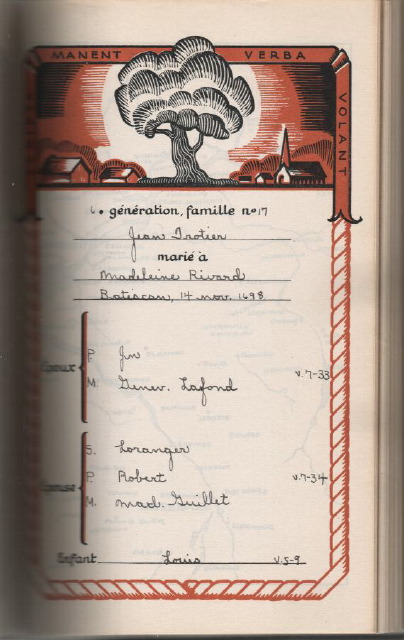 MANENT VERBA
VOLANT
6e génération, famille no 17
Jean Trotier
marié à
Madeleine Rivard
Batiscan, 14 nov. 1698
Époux
P. Jn
M. Genev. Lafond
v.7-33
Épouse
S. Loranger
P. Robert
v.7-34
M. Mad. Guillet
Enfant Louis v.5-9